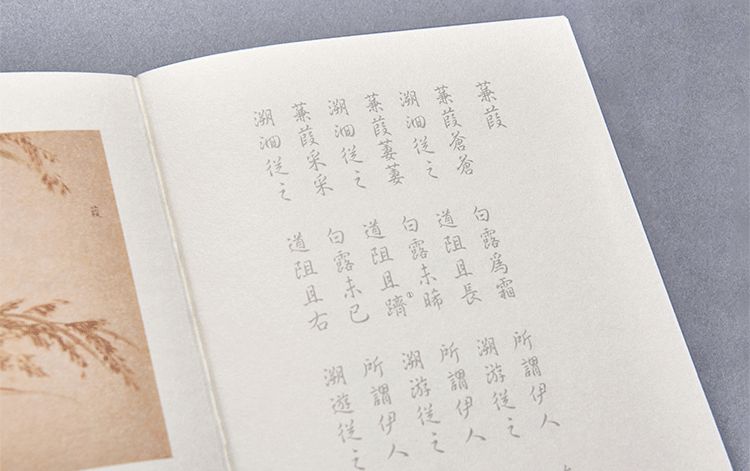 葭
蒹葭
蒹葭蒼蒼 白露爲霜 所謂伊人
溯洄從之 道阻且長 溯游從之
蒹葭萋萋 白露未晞 所謂伊人
溯洄從之 道阻且躋① 溯游從之
蒹葭采采 白露未已 所謂伊人
溯洄從之 道阻且右 溯遊從之